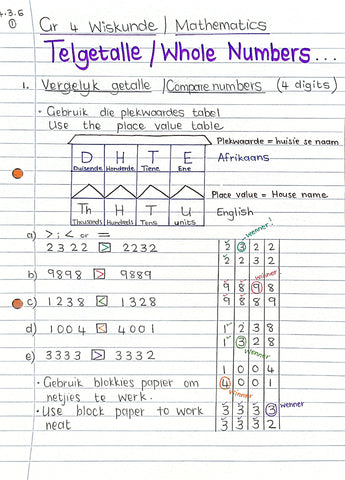 4.3.6
①
Gr 4 Wiskunde / Mathematics
Telgetalle / Whole Numbers...
1. Vergelyk getalle / Compare numbers (4 digits)
• Gebruik die plekwaardes tabel
Use the place value table
Plekwaarde = huisie se naam
D H T E Afrikaans
Duisende Honderde Tiene Ene
Place value = House name
Th H T U English
Thousands Hundreds Tens units
a) > ; < or =
2322 > 2232
b) 9898 > 9889
c) 1238 < 1328
d) 1004 < 4001
e) 3333 > 3332
Wenner!
2 3 2 2
2 2 3 2
Wenner
9 8 9 8
9 8 8 9
1 2 3 8
1 3 2 8
Wenner
1 0 0 4
4 0 0 1
Wenner
3 3 3 3 Wenner
3 3 3 2
• Gebruik blokkies papier om
netjies te werk.
• Use block paper to work
neat